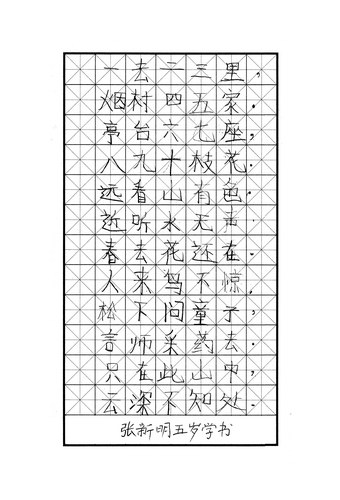 一去二三里，
烟村四五家．
亭台六七座，
八九十枝花．
远看山有色．
近听水无声．
春去花还在．
人来鸟不惊．
松下问童子，
言师采药去．
只在此山中，
云深不知处．
张新明五岁学书